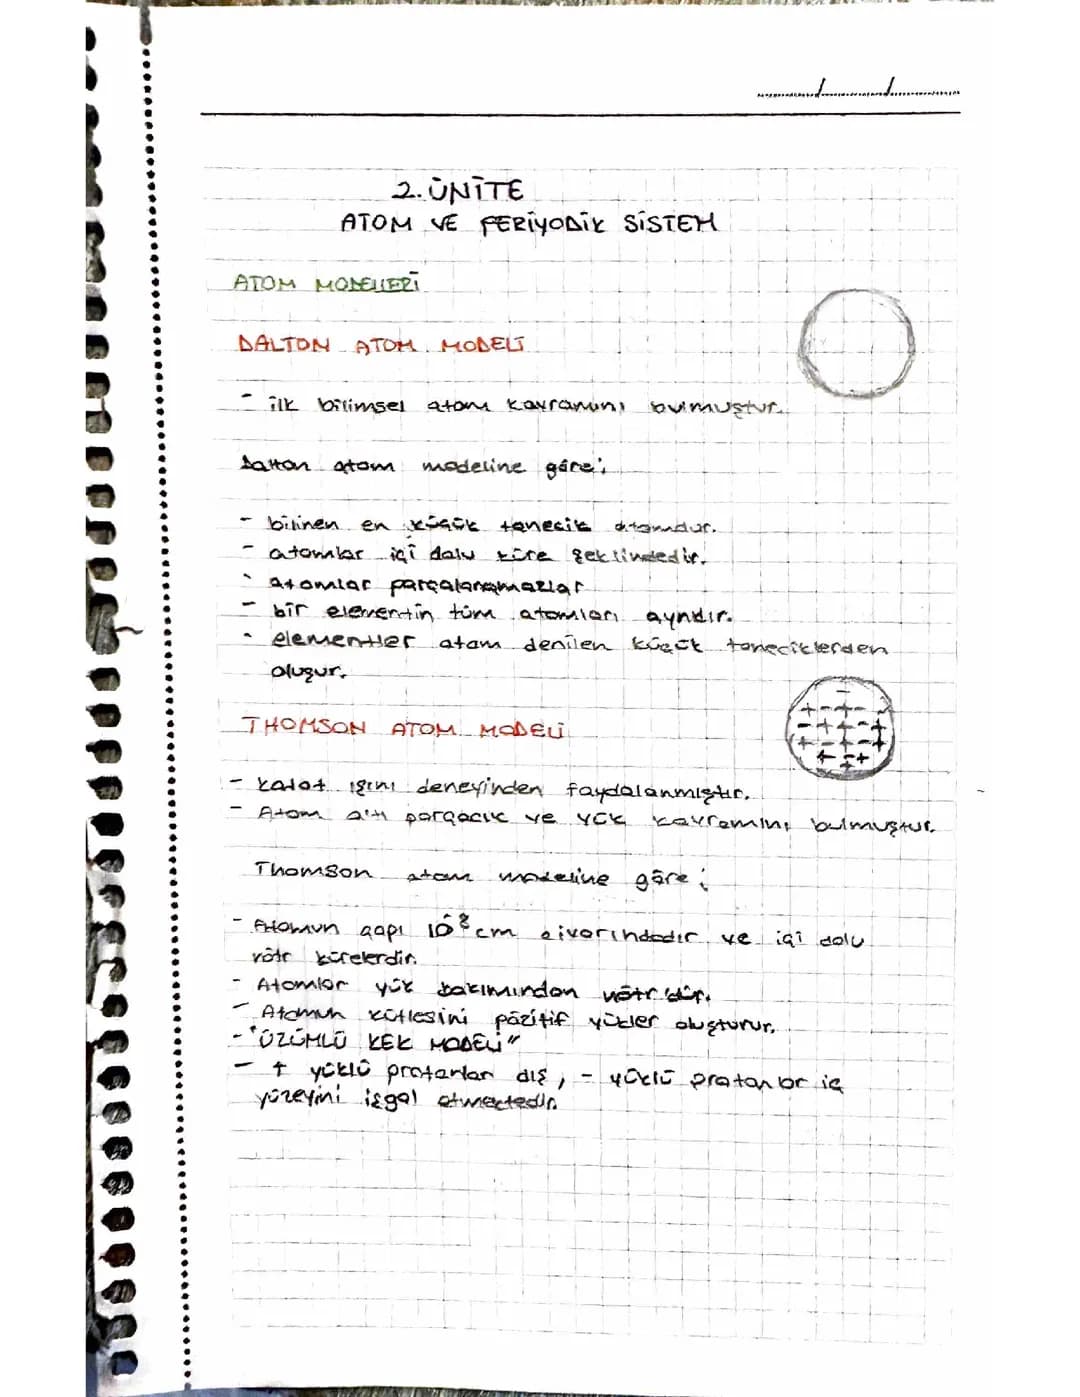 2. ÜNİTE
ATOM VE PERİYODİK SİSTEM
ATOM MODELLERİ
DALTON ATOM MODELİ
- ilk bilimsel atom kavramını bulmuştur.
Dalton atom modeline göre;
- bilinen en küçük tanecik atomdur.
- atomlar içi dolu küre şeklindedir.
- atomlar parçalanamazlar
- bir elementin tüm atomları aynıdır.
- elementler atom denilen küçük taneciklerden
oluşur.
THOMSON ATOM MODELİ
- Katot ışını deneyinden faydalanmıştır.
- Atom altı parçacık ve yük kavramını bulmuştur.
Thomson atom modeline göre;
- Atomun çapı 10⁻⁸ cm civarındadır ve içi dolu
nötr kürelerdir.
- Atomlar yük bakımından nötr'dür.
- Atomun kütlesini pozitif yükler oluşturur.
- "ÜZÜMLÜ KEK MODELİ"
- + yüklü protonlar dış, - yüklü protonlar iç
yüzeyini işgal etmektedir.